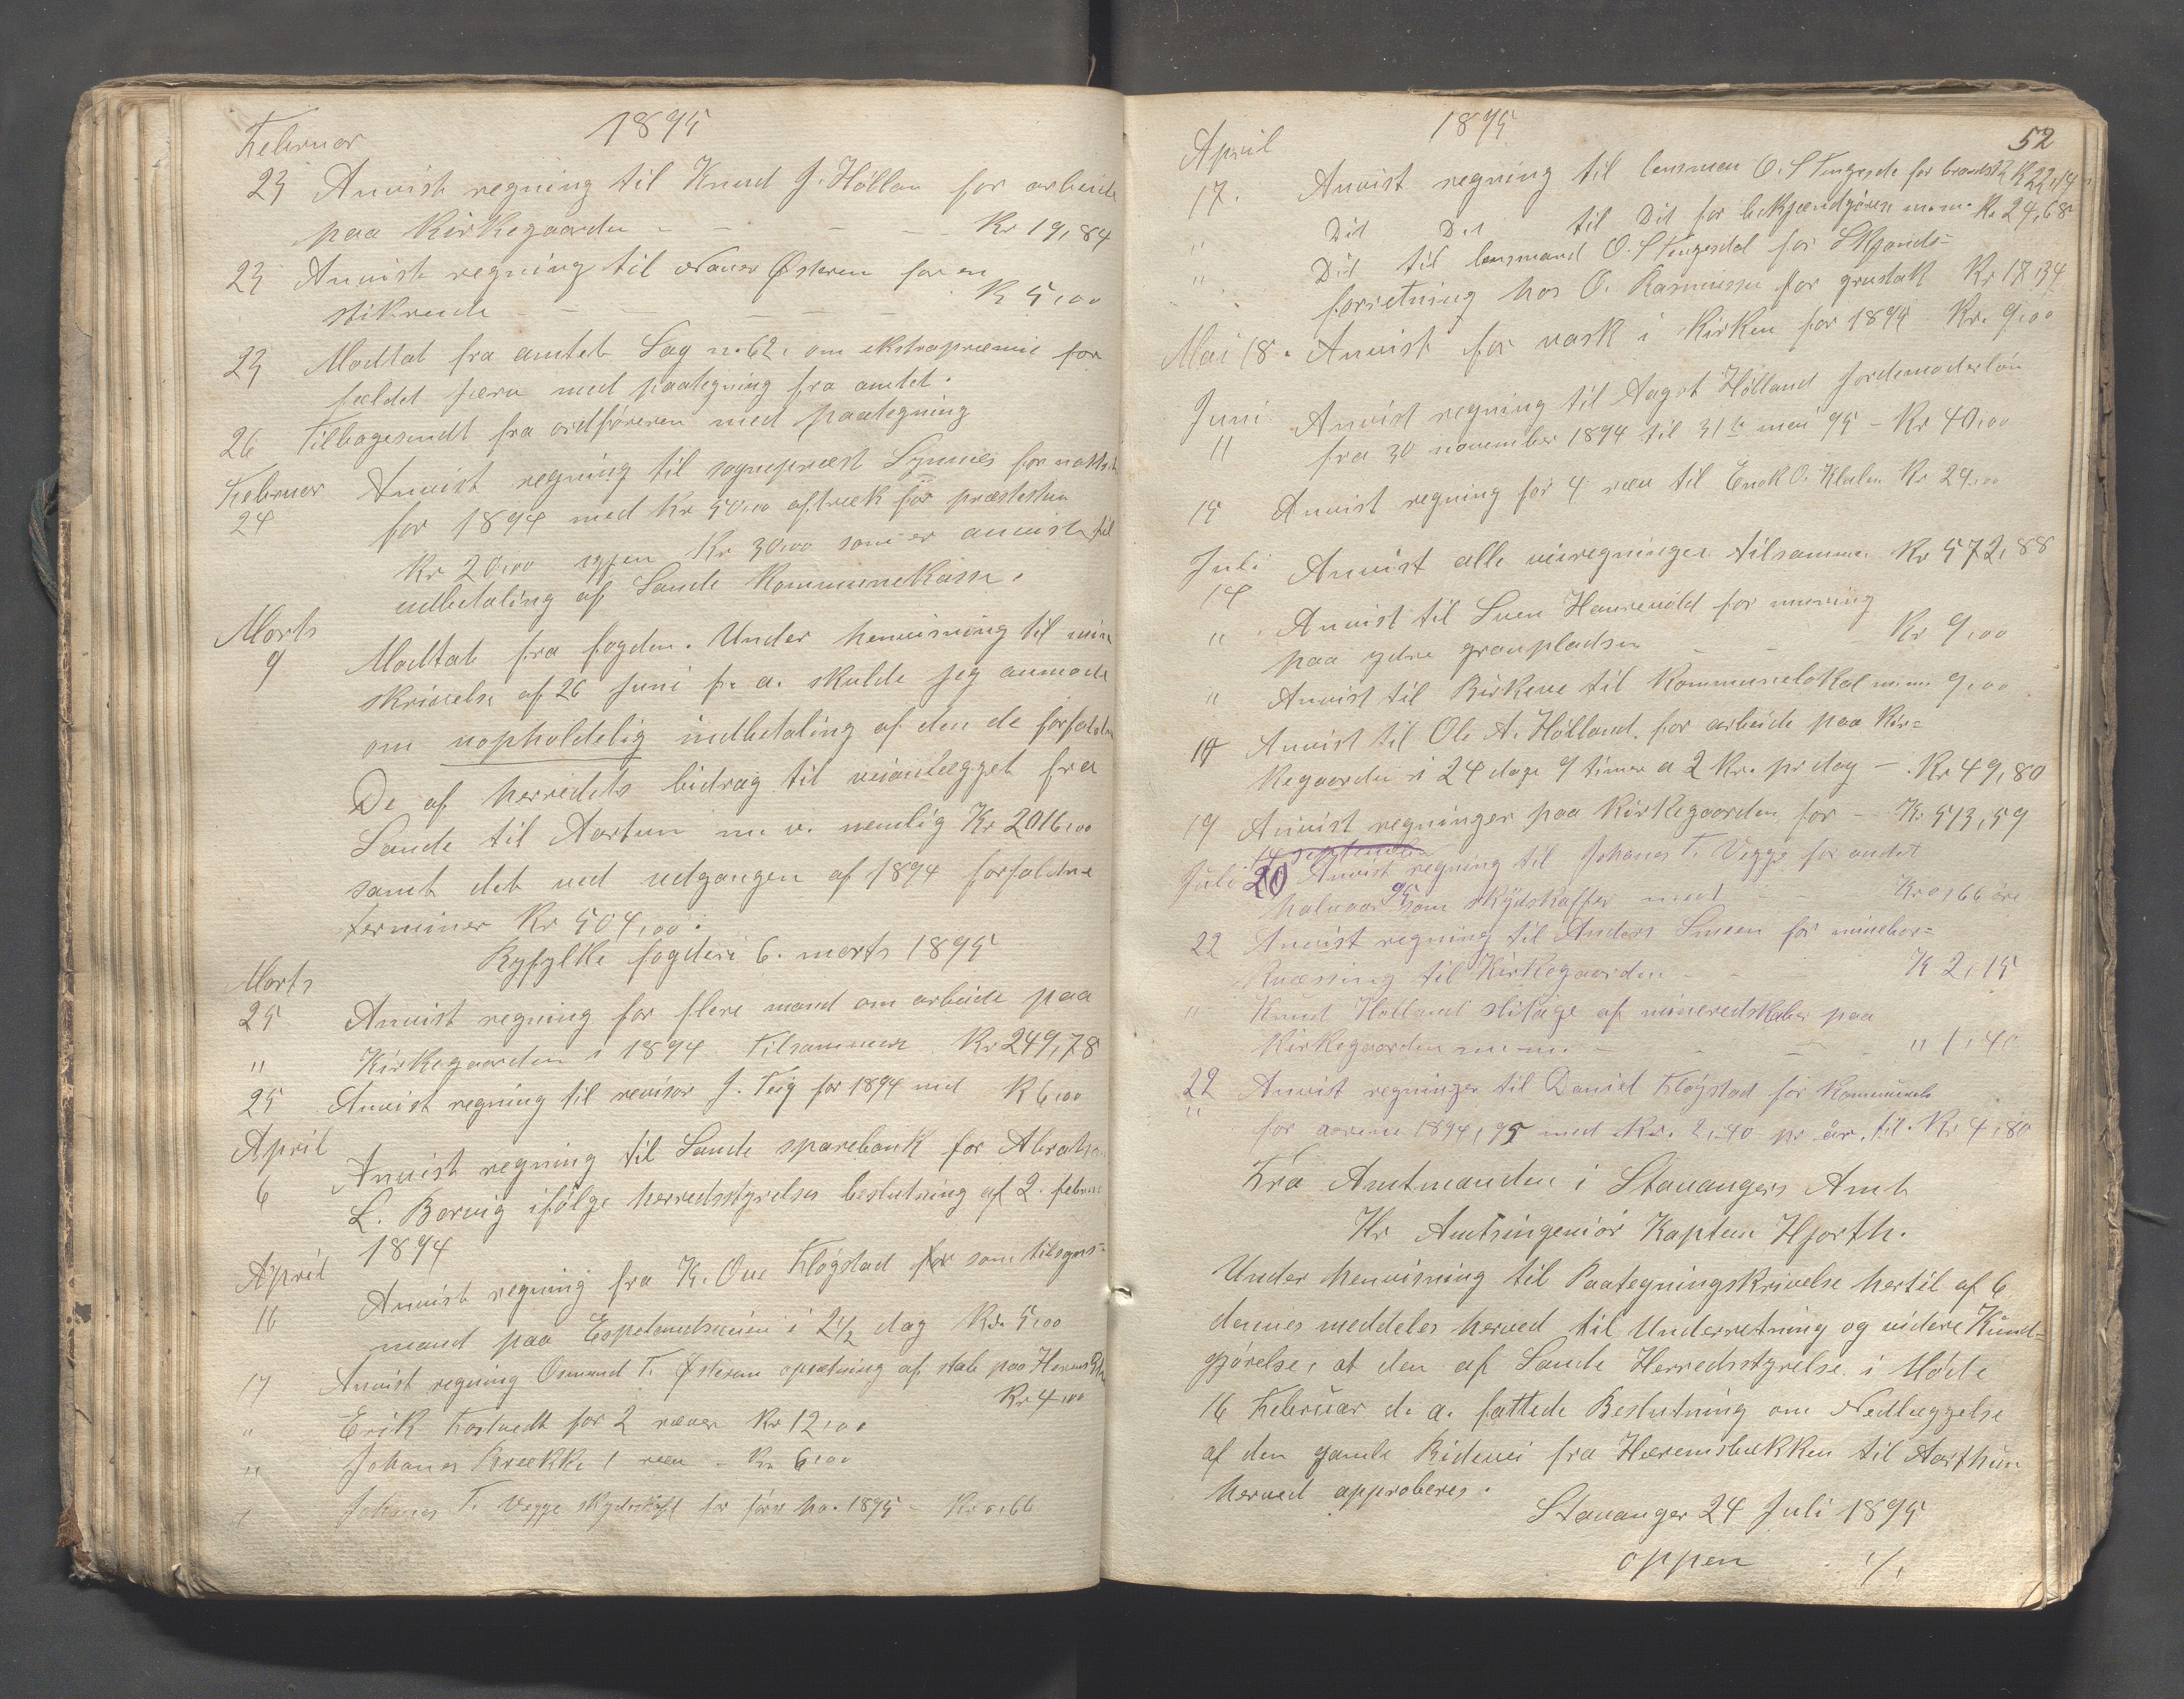 Februar 1895
23 Anvist regning til Knud J. Hölland for arbeide
paa Kirkegaarden - - - - Kr 19,84
23 Anvist regning til Østerem for en
stikrende - - - - - Kr 5,00
23 Modtat fra amtet Sag n. 62. om ekstrapræmie for
fældet bjørn med paategning fra amtet.
26 Tilbagesendt fra ordføreren med paategning
Februar Anvist regning til sogneprest Synnes for
24 for 1894 med Kr 50,00 aftræk for præstestuen
Kr 20,00 igjen Kr 30,00 som er anvist til
udbetaling af Sande Kommunekasse.
Marts
9 Modtat fra fogden. Under henvisning til min
skrivelse af 26 Juni f. a. skulde jeg anmode
om uopholdelig indbetaling af den de forfaldne
De af herredets bidrag til veianlegget fra
Sande til Aartun m. v. nemlig Kr 2016,00
samt det ved udgangen af 1894 forfaldne
terminer Kr 504,00.
Ryfylke fogderi 6. marts 1895
Marts
25 Anvist regning for flere mænd om arbeide paa
" Kirkegaarden i 1894 Tilsammen Kr 249,78
25 Anvist regning til revisor J. Teig for 1894 med K 6,00
April Anvist regning til Sande sparebank for Abraham
6 L. Borvig ifölge herredsstyrelses beslutning af 2. februar
1894
April Anvist regning fra K. Ove Flögstad for som tilsyns=
16 mand paa Espelandsveien i 2 1/2 dag Kr. 5,00
17 Anvist regning Osmund T. Østerem opsætning af stab paa
Kr 4,00
" Erik Fostvedt for 2 ræver Kr 12,00
" Johanes Brække 1 ræv - Kr 6,00
" Johanes T. Vegge skydsskaf for förse ha. 1895 - Kr 0,66
52
April 1895
17. Anvist regning til lensman O. S Tengesdal for brandsk Kr 22,14
" Dit Dit til Dit for bekjendtgjörelse m.m. Kr 24,68
" Dit til lensmand O. S Tengesdal for Skjönds=
forretning hos O. Rasmussen for grustak Kr 17,34
Mai 18. Anvist for vask i Kirken for 1894 Kr. 9,00
Juni Anvist regning til Aagot Hölland jordemoderlön
11 fra 30 november 1894 til 31te mai 95 - Kr 40,00
15 Anvist regning for 4 ræv til Enok O. Kr 24,00
Juli Anvist alle veiregninger tilsammen Kr 572,88
14
" Anvist til Sven Haurevold for muring
paa ydre gravpladsen - - Kr 9,00
" Anvist til Birkeve til Kommunelokal m.m. 9,00
14 Anvist til Ole A. Hölland. for arbeide paa Kir=
kegaarden i 24 dage 9 timer a 2 Kr. pr dag - Kr 49,80
19 Anvist regninger paa Kirkegaarden for - Kr 513,59
14 september
Juli 20 Anvist regning til Johanes T. Vegge for andet
halvaar 95 som skydskaffer med - - Kr 0,66 öre
22 Anvist regning til Anders Smeen for minebor=
kvæssing til Kirkegaarden - - K 2,15
" Knud Holland slitage af mineredskaber paa
Kirkegaarden m.m. - - - " 1,40
22 Anvist regninger til Daniel Flögstad for
" for aarene 1894, 95 med Kr. 2,40 pr år. til. Kr 4,80
Fra Amtmanden i Stavangers Amt
Hr Amtsingeniör Kaptein Hjorth.
Under henvisning til Paategningskrivelse hertil af 6
dennes meddeles herved til Underretning og videre Kund=
gjörelse, at den af Sande Herredsstyrelse i Möde
16 Februar d. a. fattede Beslutning om Nedlæggelse
af den gamle Ridevei fra Hærensbækken til Aarthun
herved approberes.
Stavanger 24 Juli 1895
oppen ./.